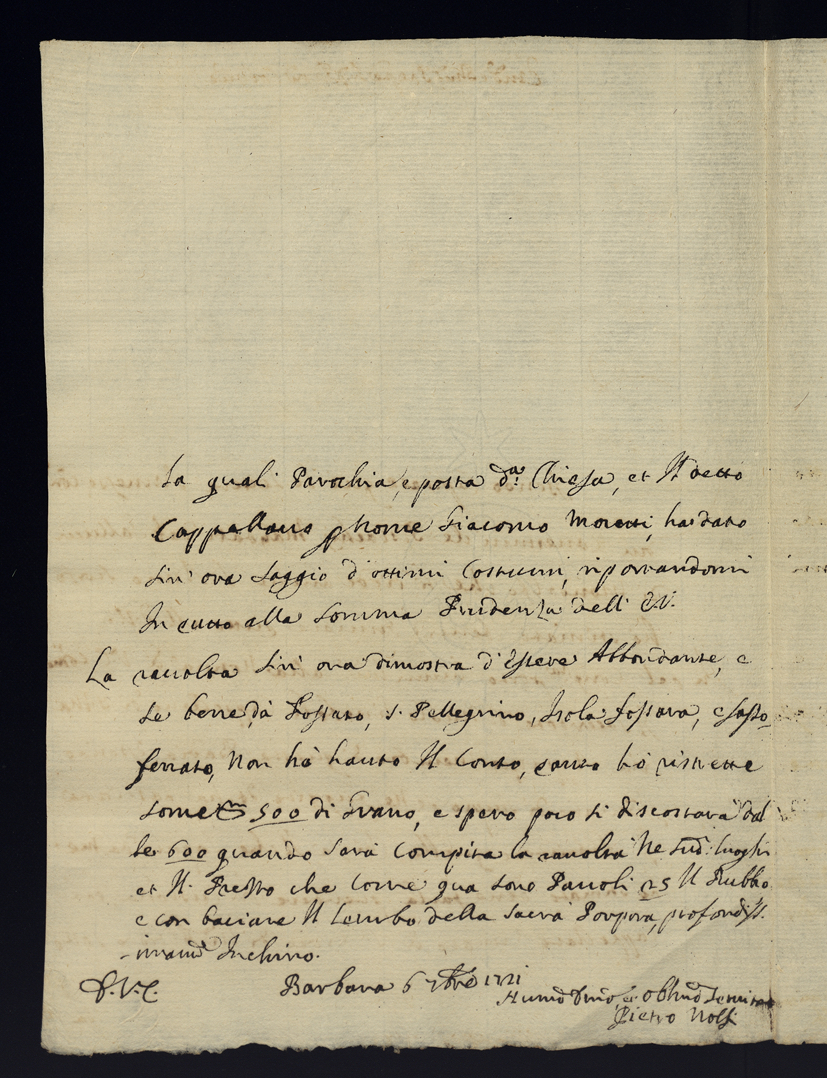 la quali Parochia, e posta d.ª Chiesa, et Il detto
Cappellano p Nome Giacomo Moretti, ha dato
sin' ora saggio d'ottimi Costumi, riportandomi
In tutto alla somma Prudenza dell' E.V.
La raccolta sin' ora dimostra d'essere Abbondante, e
se bene dà Fossato, S. Pellegrino, Isola Fossara, e Sasso
ferrato, Non hò hauto Il Conto, tanto hò ristrette
some 500 di Grano, e spero poco si discostarà dal
le 600 quando sarà Compita la raccolta Ne sud: luoghi
et Il Prezzo che Corre qua sono Pauoli 25 Il Rubbo
e con baciare Il Lembo della Sacra Porpora, profondiss.
imam.e Inchino.
D.V.E.
Barbara 6 7bre 1721
Hum Dmo, et Obbmo Servitore
Pietro Nolfi